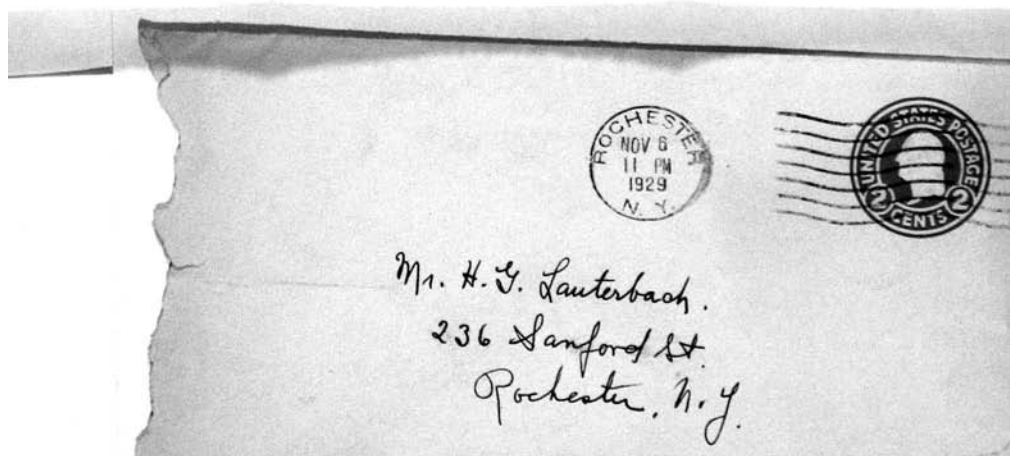 ROCHESTER
NOV 6
11 PM
1929
N. Y.
UNITED STATES POSTAGE
2 CENTS 2
Mr. H. G. Lauterbach.
236 Sanford St.
Rochester, N. Y.